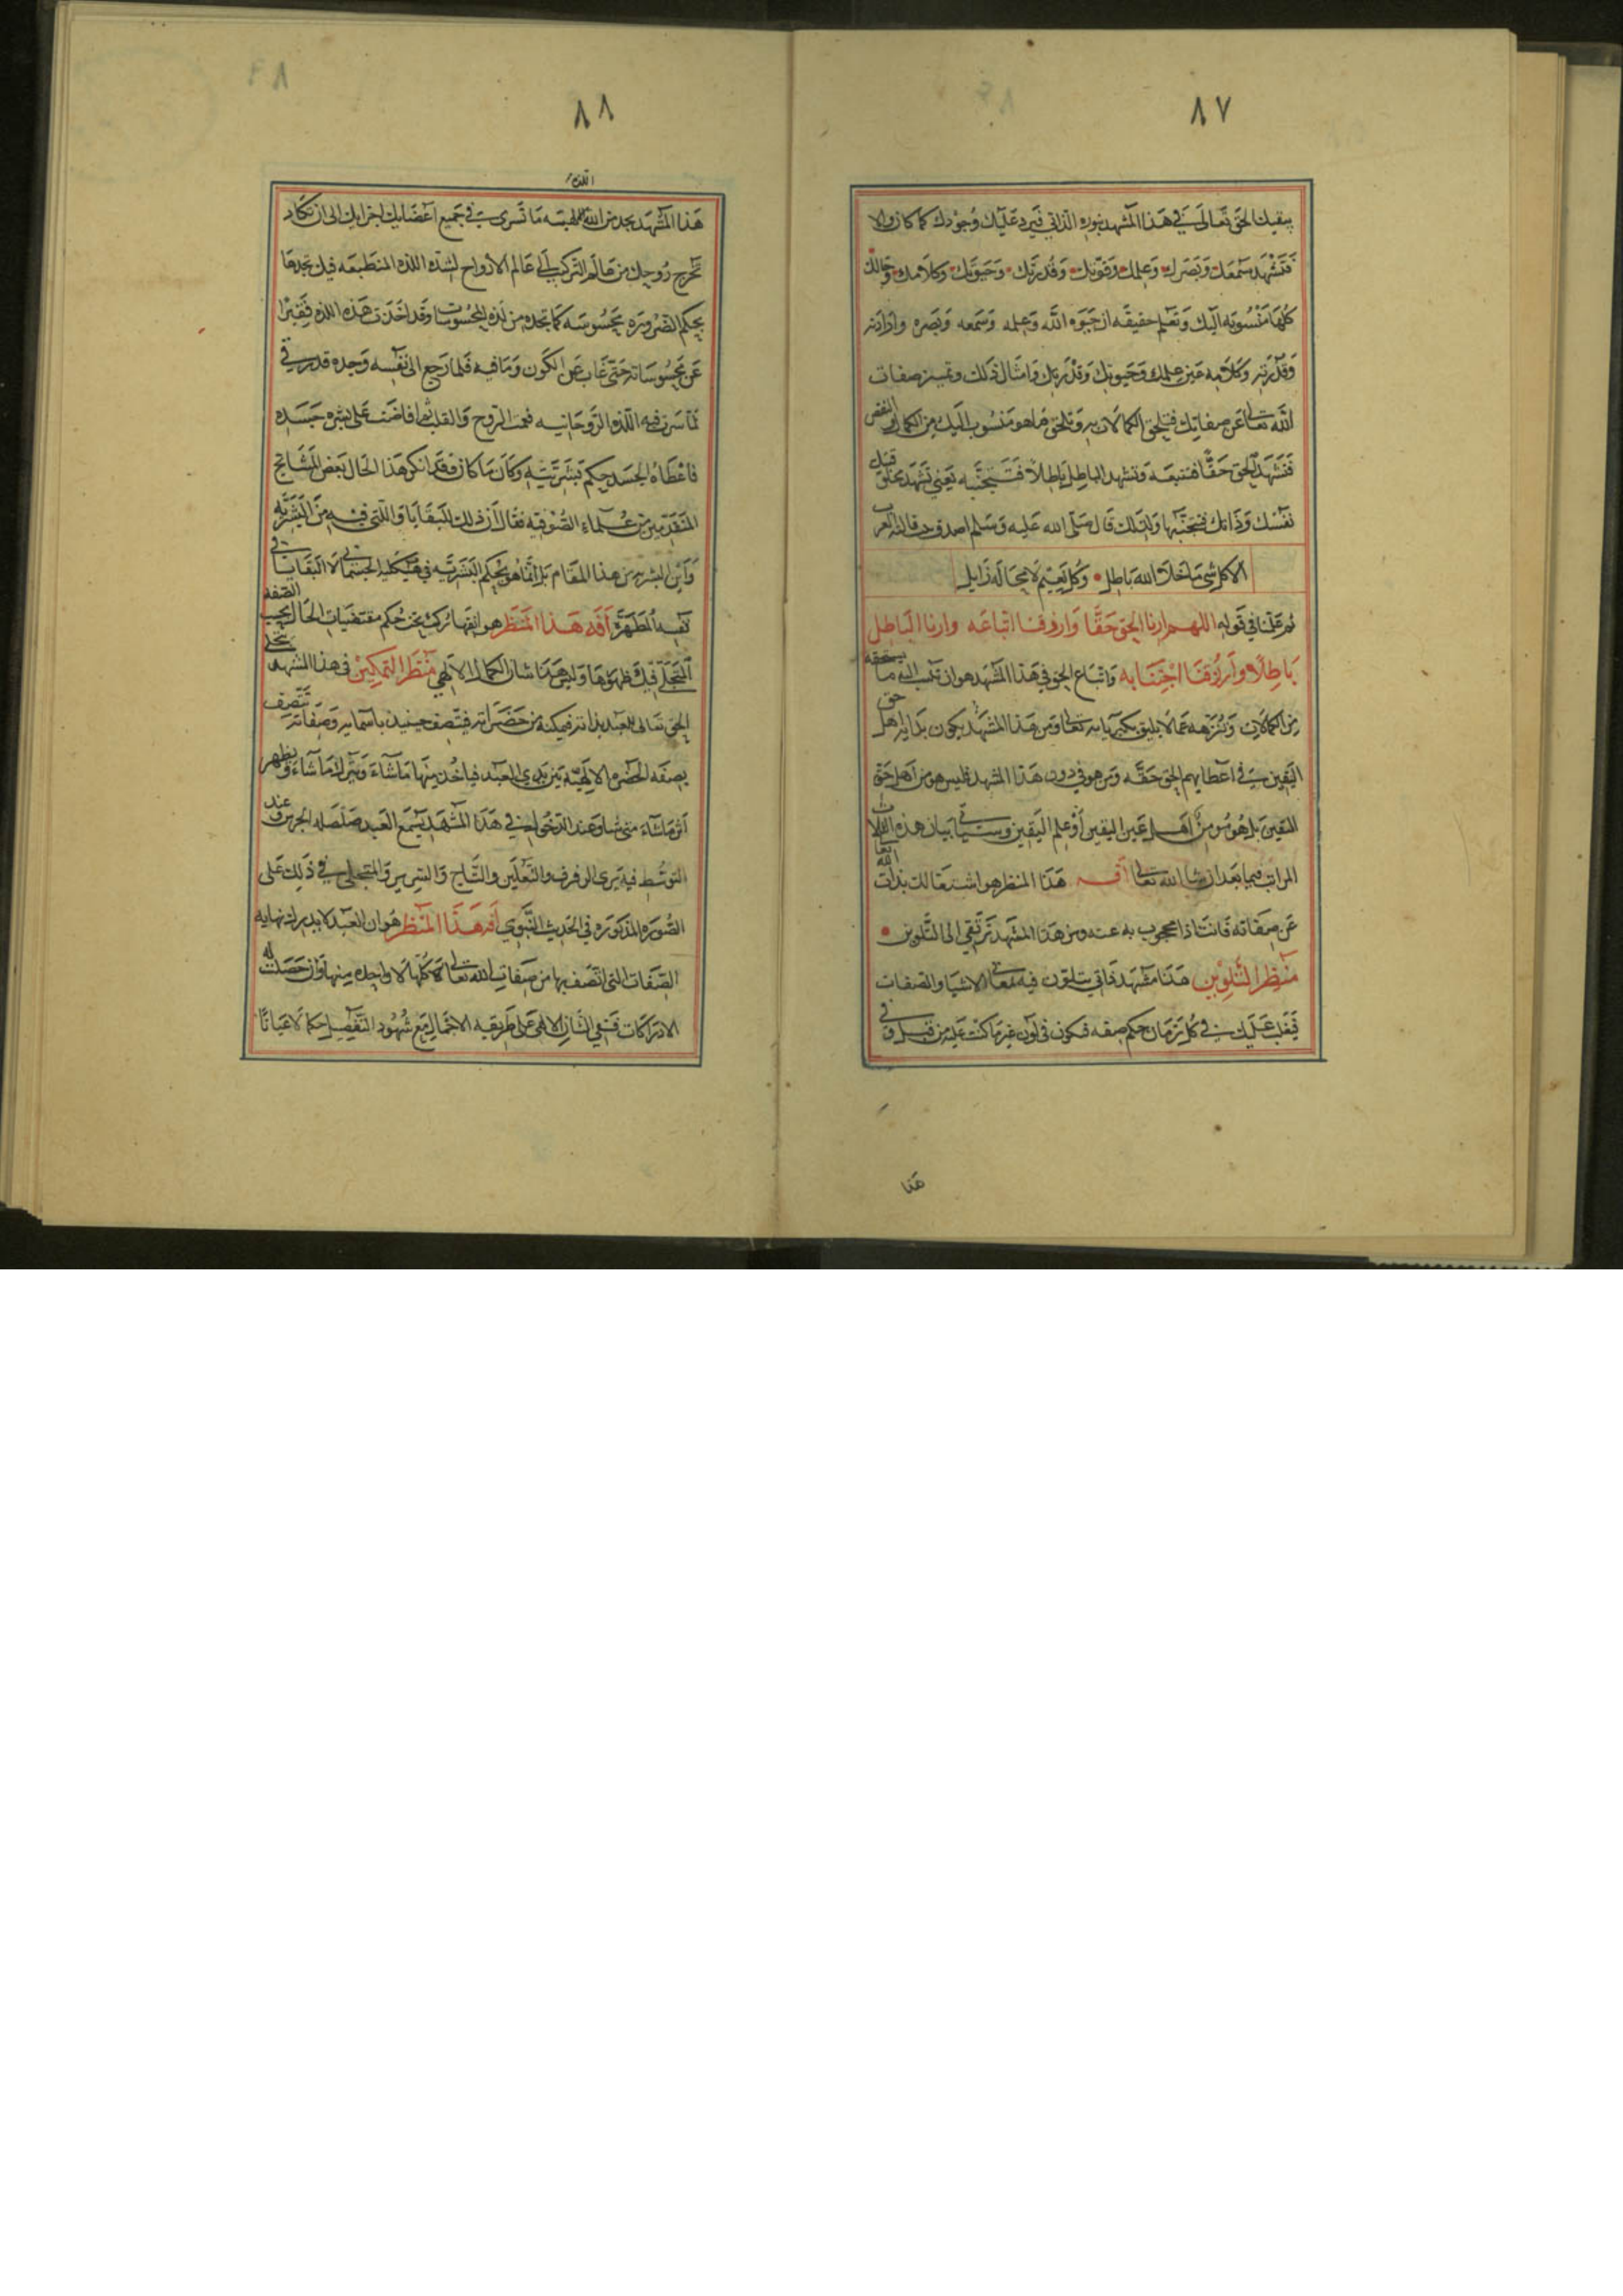 ٨٧
يبقيك الحق تعالى في هذا المشهد بنوره الذاتي فيرد عليك وجودك كما كان اولا
فتشهد سمعك وبصرك وعلمك وقوتك وقدرتك وحيوتك وكلامك وحالك
كلها منسوبه اليك وتعلم حقيقه ان حيوه الله وعلمه وسمعه وبصره وارادته
وقدرته وكلامه غير علمك وحيوتك وقدرتك وامثال ذلك وتميز صفات
الله تعالى عن صفاتك فتلحق الكمالات به وتلحق ما هو منسوب اليك من الكمال والنقص
فتشهد الحق حقا فتتبعه وتشهد الباطل باطلا فتجتنبه يعني تشهد قبل
نفسك وذاتك فتجتنبها ولذلك قال صلى الله عليه وسلم اصدق بيت قالته العرب
الا كل شي ما خلا الله باطل وكل نعيم لا محاله زايل
ثم علمنا في قوله اللهم ارنا الحق حقا وارزقنا اتباعه وارنا الباطل
باطلا وارزقنا اجتنابه واتباع الحق في هذا المشهد هو ان تنسب اليه ما يستحقه
من الكمالات وتنزهه عما لا يليق بكبريايه تعالى ومن هذا المشهد يكون بدايه اهل حق
اليقين في اعطايهم الحق حقه ومن هو في دون هذا المشهد فليس هو من اهل حق
اليقين بل هو من اهل عين اليقين او علم اليقين وسياتي بيان هذه الثلاث
المراتب فيما بعد ان شا الله تعالى آفه هذا المنظر هو اشتغالك بذات الله تعالى
عن صفاته فانت اذا محجوب به عنه ومن هذا المشهد ترتقي الى التلوين
منظر التلوين هذا مشهد ذاتي يتلون فيه بمعاني الاشيا والصفات
فيغلب عليك في كل زمان حكم صفه فتكون في لون غير ما كنت عليه من قبل وفي
هذا
٨٨
اللذه
هذا المشهد يجد من الالهيه ما تسري في جميع اعضايك اجزايك الى ان تكاد
تخرج روحك من عالم التركيب الى عالم الارواح لشده اللذه المنطبعه فيك تجدها
بحكم الضروره محسوسه كما تجده من لذه المحسوسات وقد اخذت هذه اللذه فقيرا
عن محسوساته حتى غاب عن الكون وما فيه فلما رجع الى نفسه وجده قد
لما سرت فيه اللذه الروحانيه فعمت الروح والقلب افاضت على بشره جسده
فاعطاه الجسد حكم بشريته وكان ما كان فقد انكر هذا الحال بعض المشايخ
المتقدمين من علماء الصوفيه فقال ان ذلك لبقايا اللتي فيه من البشريه
واين البشريه من هذا المقام بل انما هو بحكم البشريه في هيكله الجسماني لا لبقايا في
نفسه المطهره آفه هذا المنظر هو انقهارك تحت حكم مقتضيات الحال بحسب الصفه
المتجلى فيك ظهورها وليس هذا شان الكمال الالهي منظر التمكين في هذا المشهد يتجلى
الحق تعالى للعبد بذاته فيمكنه من حضراته فيتصف حينيذ باسمايه وصفاته تتصرف
بصفه الحضره الالهيه بين يدي العبد فياخذ منها ما شاء ويترك ما شاء ويظهر
اثر ما شاء متى شا وعند الدخول في هذا المشهد يسمع العبد صلصله الجرس وعند
التوسط فيه يرى الرفرف والنعلين والتاج والسرير والمتجلي في ذلك على
الصوره المذكوره في الحديث النبوي آفه هذا المنظر هو ان العبد لا يدرك نهايه
الصفات التي اتصف بها من صفات الله تعالى لا كلها ولا واحده منها وان حصلت له
الادراكات فهي الشان الالهي على طريقه الاجمال مع شهود التفصيل حكما لا عيانا